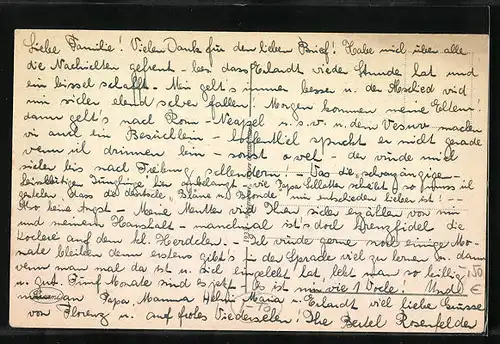 Liebe Familie! Vielen Dank für den lieben Brief! Habe mich über alle
die Nachrichten gefreut - bes. dass Erlardt wieder Stunde hat und
ein bissel schafft. - Mir geht's immer besser u. der Abschied wird
mir sicher elend schwer fallen! Morgen kommen meine Eltern!
dann geht's nach Rom - Neapel u.s.w. u. dem Vesuv machen
wir auch ein Besüchlein - hoffentlich spuckt er nicht gerade
wenn ich drinnen bin - sonst o weh - der würde mich
sicher bis nach schleudern! - Was die
Jünglinge hier anbelangt - wie Papa schreibt so muss ich
gestehen dass der deutsche Blaue u. Blonde mir entschieden lieber ist! --
Also keine Angst - Meine Mutter wird Ihnen sicher erzählen von mir
und meinem Haushalt - manchmal ist's doch kreuzfidel die
Kocherei auf dem kl. Herdchen. - Ich würde gerne noch einige Mo-
nate bleiben denn erstens gibt's in der Sprache viel zu lernen u. dann
wenn man mal da ist u. sich eingelebt hat, lebt man so billig
u. gut. Fünf Monate sind es jetzt. Es ist mir wie 1 Woche! Und
Papa, Mamma, Helmi Maria u. Erlardt viel liebe Grüsse
von Florenz u. auf frohes Wiedersehen! Ihre Bertel Rosenfelder